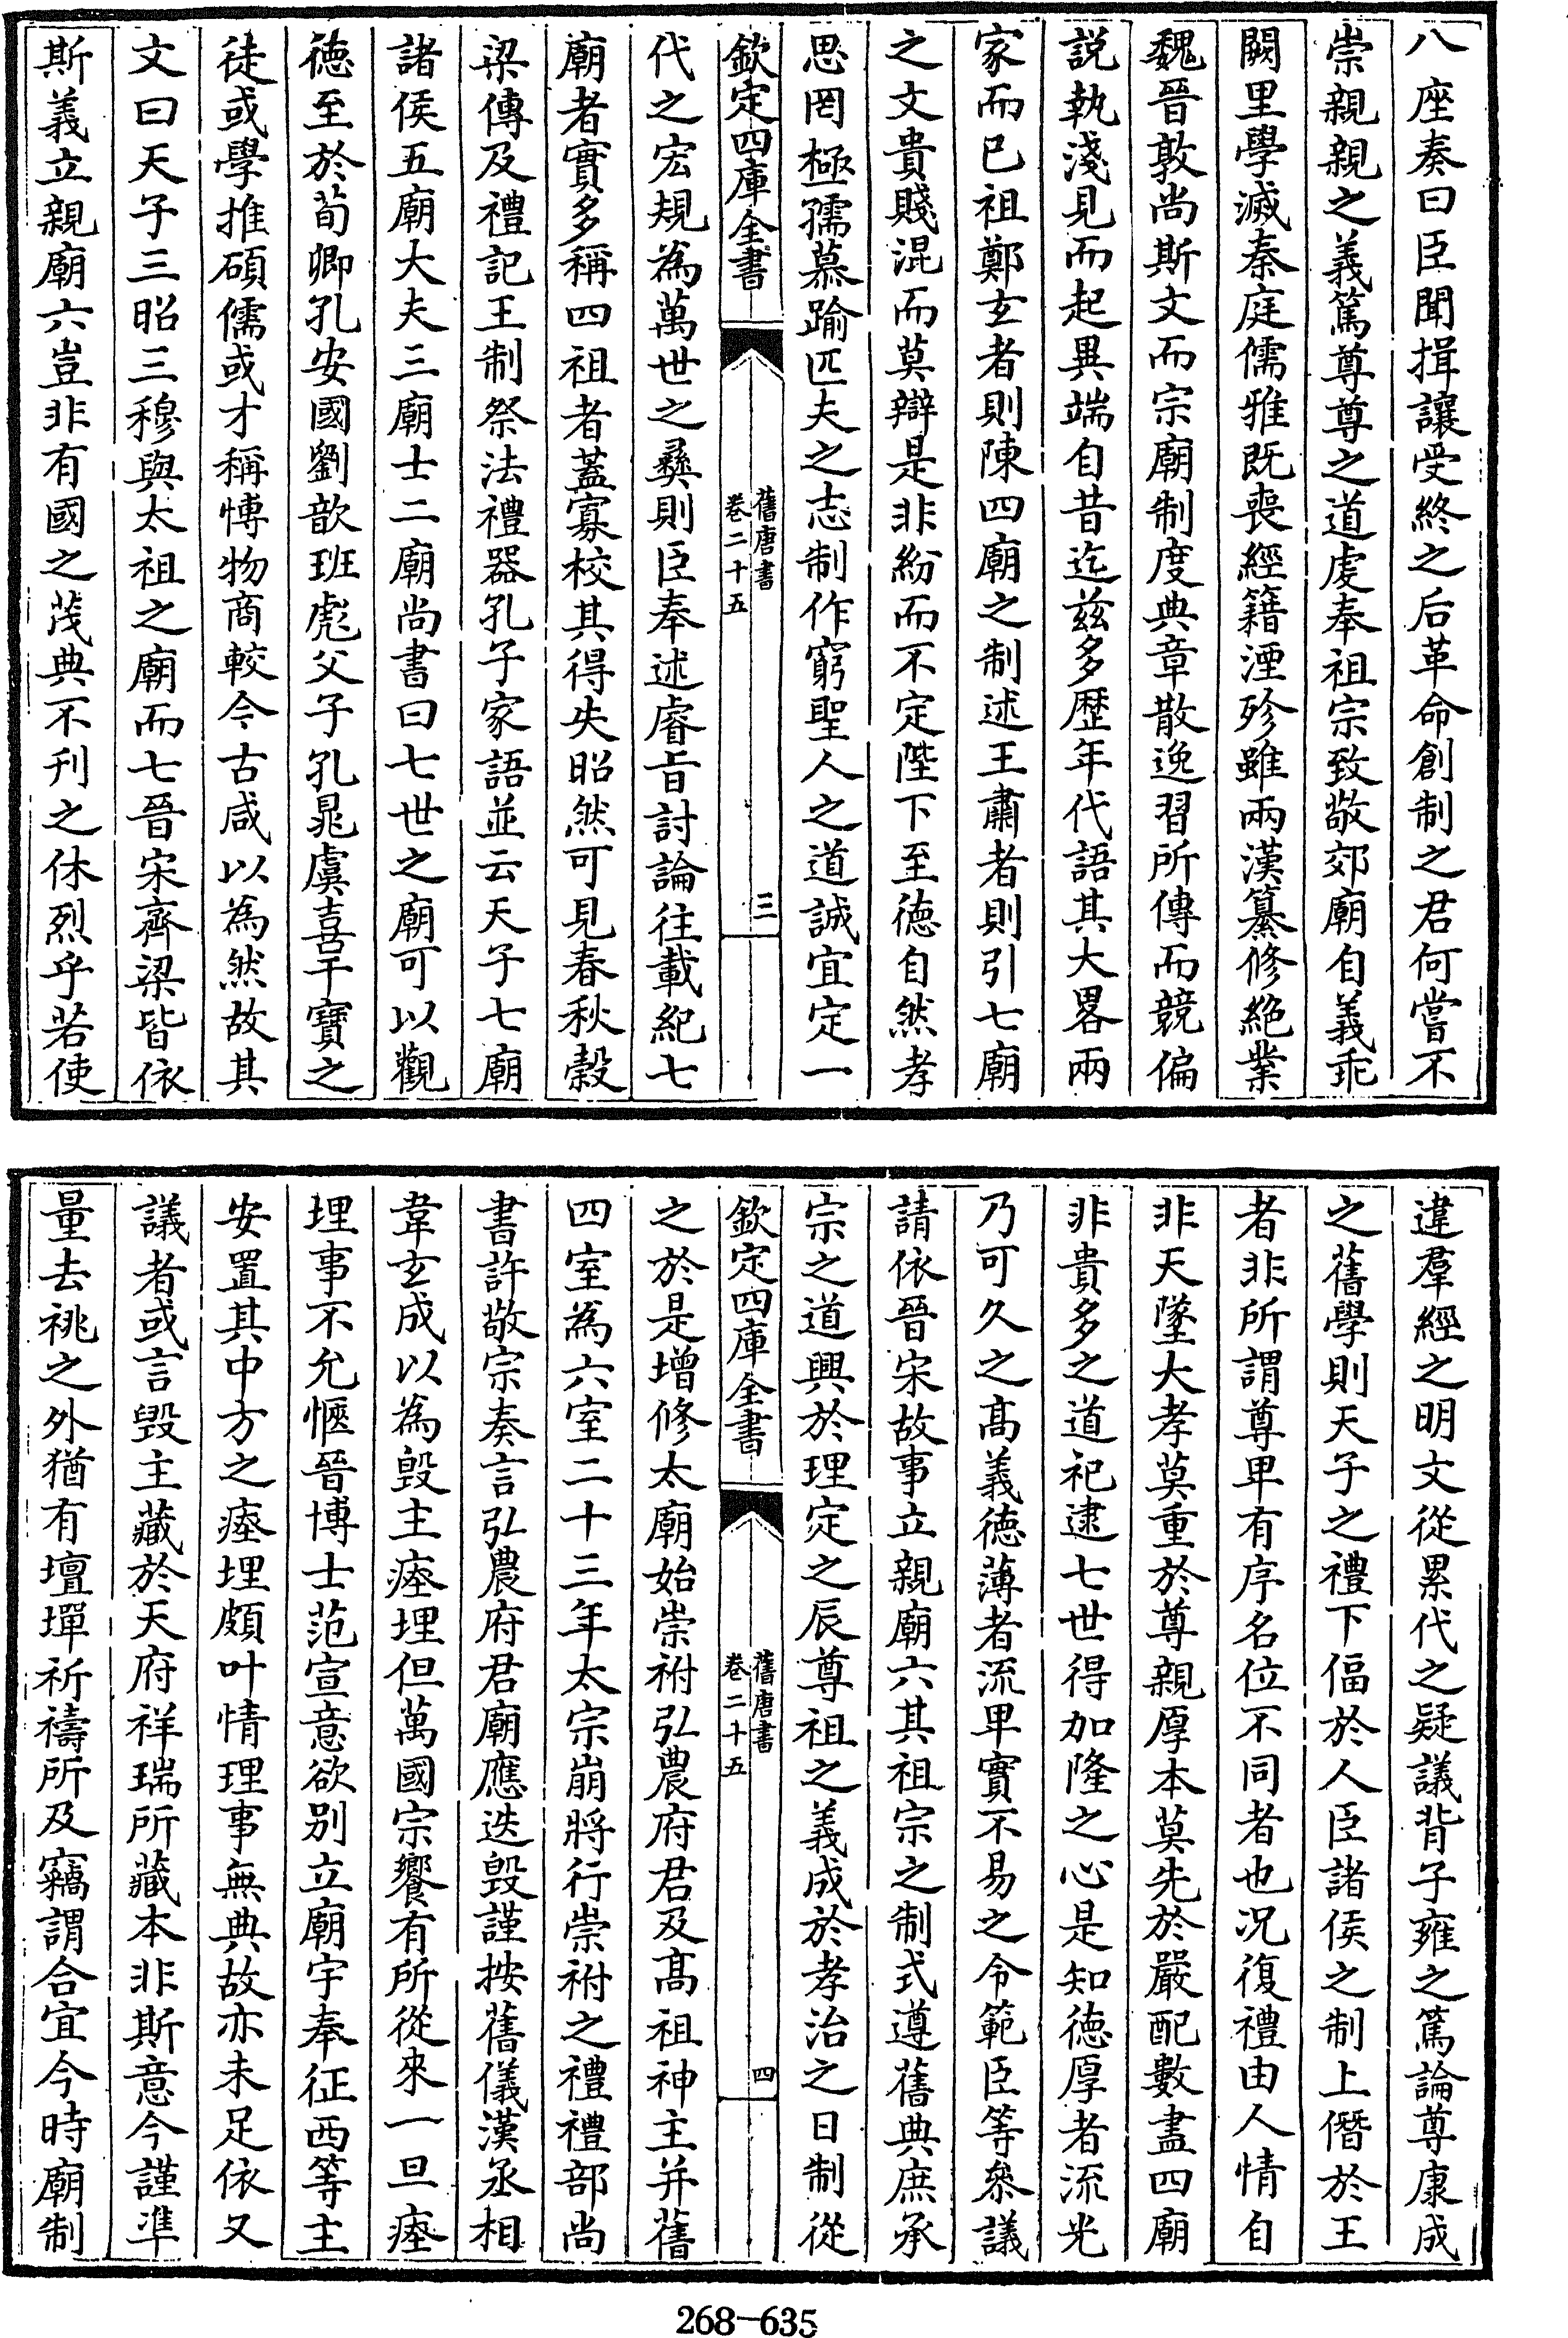 八座奏曰臣聞揖讓受終之后革命創制之君何嘗不
崇親親之義篤尊尊之道虔奉祖宗致敬郊廟自義乖
闕里學滅秦庭儒雅既喪經籍湮殄雖兩漢纂修絶業
魏晉敦尚斯文而宗廟制度典章散逸習所傳而競偏
説執淺見而起異端自昔迄兹多歴年代語其大畧兩
家而已祖鄭玄者則陳四廟之制述王肅者則引七廟
之文貴賤混而莫辯是非紛而不定陛下至徳自然孝
思罔極孺慕踰匹夫之志制作窮聖人之道誠宜定一
欽定四庫全書
舊唐書
卷二十五
三
代之宏規為萬世之彞則臣奉述睿旨討論往載紀七
廟者實多稱四祖者蓋寡校其得失昭然可見春秋穀
梁傳及禮記王制祭法禮器孔子家語並云天子七廟
諸侯五廟大夫三廟士二廟尚書曰七世之廟可以觀
徳至於荀卿孔安國劉歆班彪父子孔晁虞喜干寶之
徒或學推碩儒或才稱博物商較今古咸以為然故其
文曰天子三昭三穆與太祖之廟而七晉宋齊梁皆依
斯義立親廟六豈非有國之茂典不刊之休烈乎若使
違羣經之明文從累代之疑議背子雍之篤論尊康成
之舊學則天子之禮下偪於人臣諸侯之制上僭於王
者非所謂尊卑有序名位不同者也况復禮由人情自
非天墜大孝莫重於尊親厚本莫先於嚴配數盡四廟
非貴多之道祀逮七世得加隆之心是知徳厚者流光
乃可久之高義徳薄者流卑實不易之令範臣等參議
請依晉宋故事立親廟六其祖宗之制式遵舊典庶承
宗之道興於理定之辰尊祖之義成於孝治之日制從
欽定四庫全書
舊唐書
卷二十五
四
之於是增修太廟始崇祔弘農府君及高祖神主并舊
四室為六室二十三年太宗崩將行崇祔之禮禮部尚
書許敬宗奏言弘農府君廟應迭毁謹按舊儀漢丞相
韋玄成以為毁主瘞埋但萬國宗饗有所從來一旦瘞
埋事不允愜晉博士范宣意欲别立廟宇奉征西等主
安置其中方之瘞埋頗叶情理事無典故亦未足依又
議者或言毁主藏於天府祥瑞所藏本非斯意今謹凖
量去祧之外猶有壇墠祈禱所及竊謂合宜今時廟制
268-635